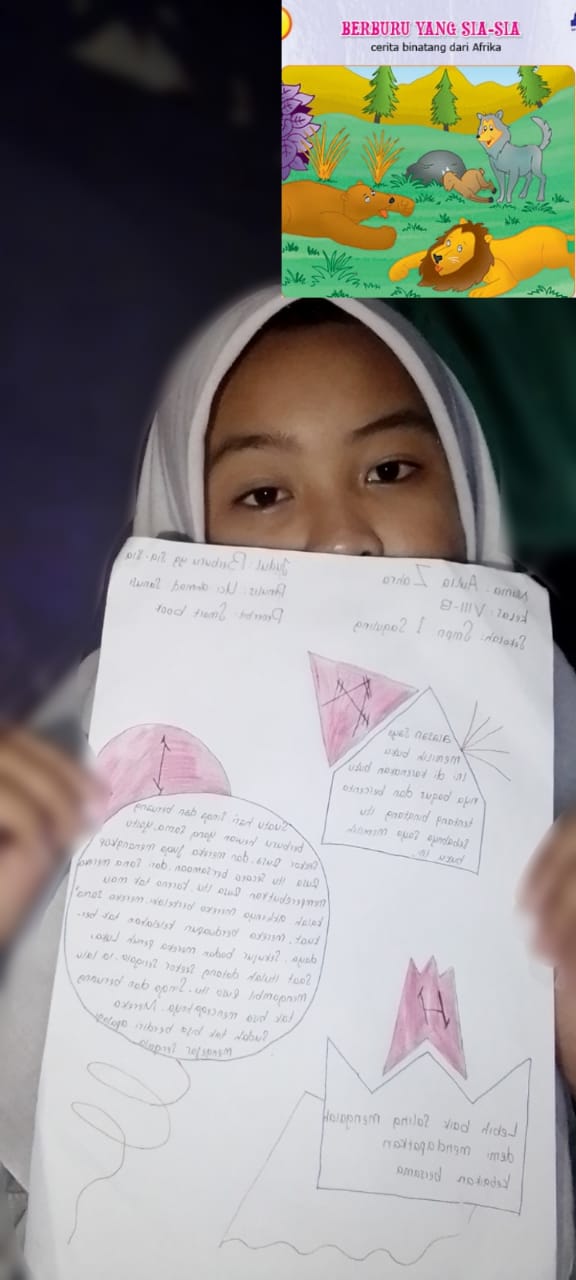 BERBURU YANG SIA-SIA
cerita binatang dari Afrika
Nama: Aulia Zahra
kelas: VIII-B
Sekolah: Smpn 1 Saguling
Judul: Berburu yg Sia-Sia
Penulis: Uci Ahmad Sanusi
Penerbit: Smart book
A
alasan Saya
memilih buku
ini di karnakan buku
nya bagus dan bercerita
tentang binatang itu
Sebabnya Saya memilih
buku ini.
I
Suatu hari Singa dan beruang
berburu hewan yang Sama. Yaitu
Seekor Rusa. dan mereka juga menangkap
Rusa itu secara bersamaan. dan Sama merasa
memperebutkan Rusa itu. karna tak mau
kalah akhirnya mereka berkelahi. mereka Sama
kuat. mereka kelelahan tak ber-
daya. Sekujur badan mereka penuh Luka.
Saat itulah datang Seekor Serigala. ia lalu
mengambil Rusa itu. Singa dan beruang
tak bisa mencegahnya. Mereka
Sudah tak bisa berdiri apalagi
mengejar Serigala
H
Lebih baik Saling mengalah
demi mendapatkan
kebaikan bersama